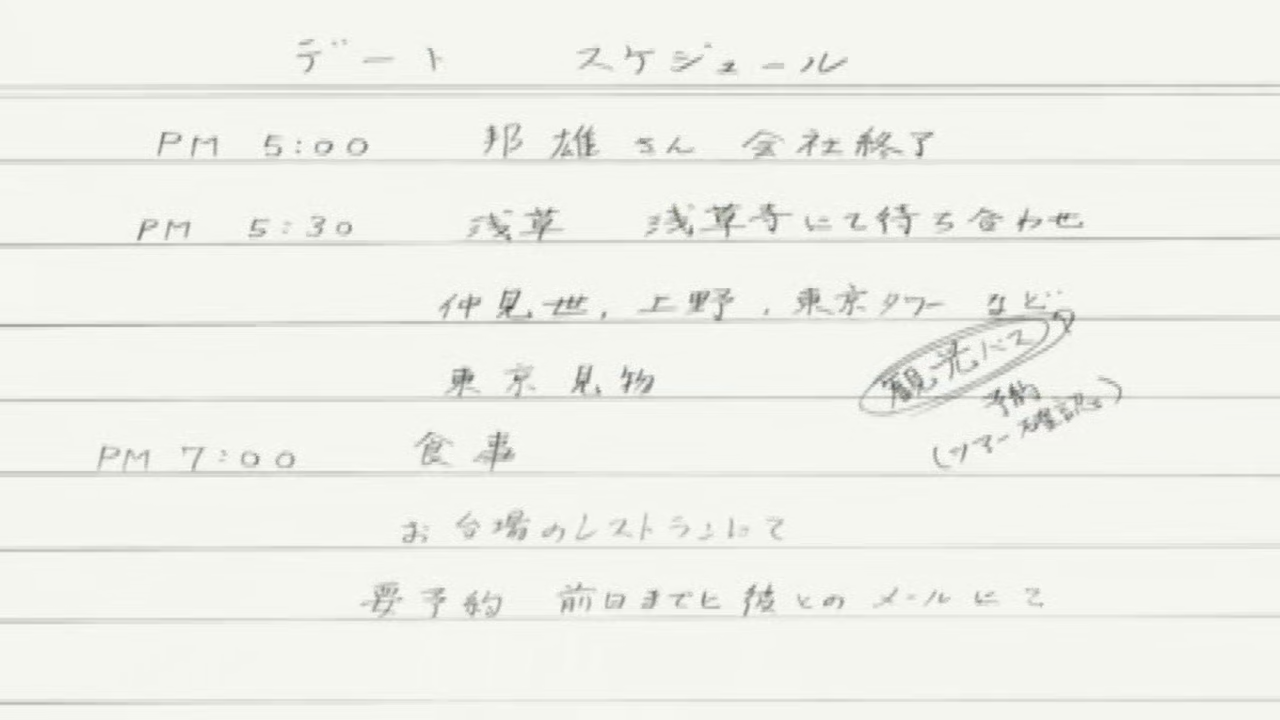 デート スケジュール
PM 5:00 邦雄さん 会社終了
PM 5:30 浅草 浅草寺にて待ち合わせ
仲見世, 上野, 東京タワー など
東京見物
観光バス
予約
(ツアー確認を)
PM 7:00 食事
お台場のレストランにて
要予約 前日までに 彼とのメールにて